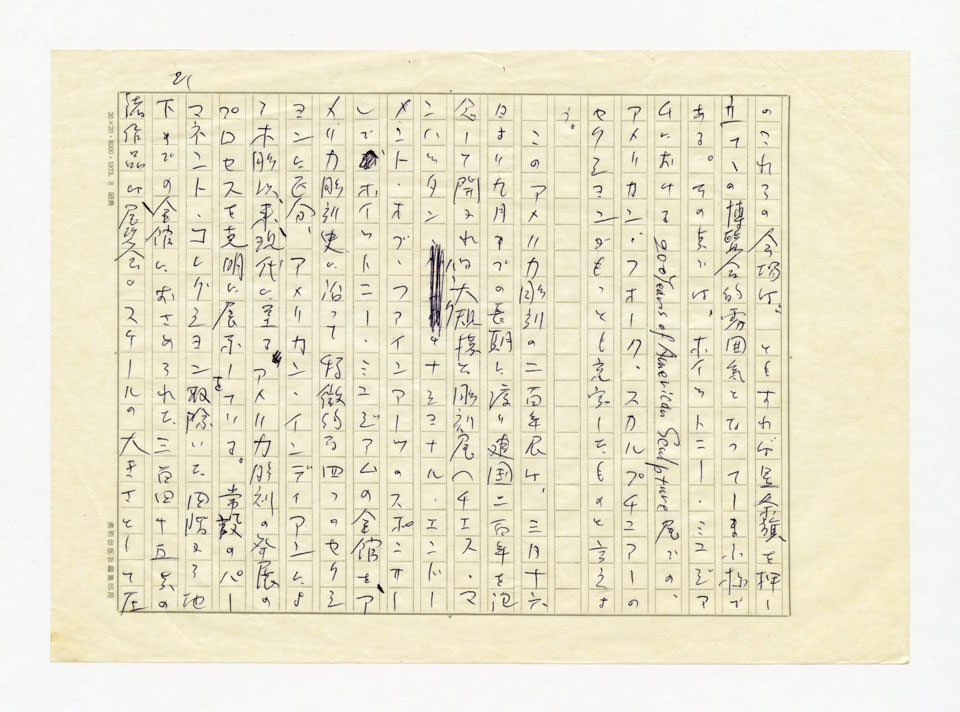 21
のこれらの会場は、ともすれば星条旗を押し
立てゝの博覧会的雰囲気となってしまい松で
ある。その点では、ホイットニー・ミュゼア
ムにおける 200 Years of American Sculpture 展での、
アメリカン・フォーク・スカルプチュアーの
セクションがもっとも充実したものと言えよ
う。
このアメリカ彫刻の二百年展は、三月十六
日より九月までの長期に渡り建国二百年を記
念して開かれた大規模な彫刻展へチエス・マ
ンハッタン・ナショナル・エンドー
メント・オブ・ファインアーツのスポンサー
しでホイットニー・ミュゼアムの全館を、ア
メリカ彫刻史に沿って特徴的な四つのセクシ
ョンに区分、アメリカン・インディアンによ
る木彫以来、現代に至るアメリカ彫刻の発展の
プロセスを克明に展示している。常設のパー
マネント・コレクションを取除いた四階より地
下までの全館におさめられた三百四十五点の
諸作品は展覧会のスケールの大きさとして圧
20×20・8000・1973. 8